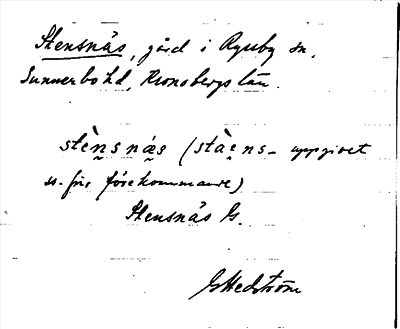 Stensnäs, gård i Ryssby sn,
Sunnerbo hd, Kronobergs län.
stè̀nsnæs (stàens- uppgivet
ss. förekommande)
Stensnäs G.
G Hedström